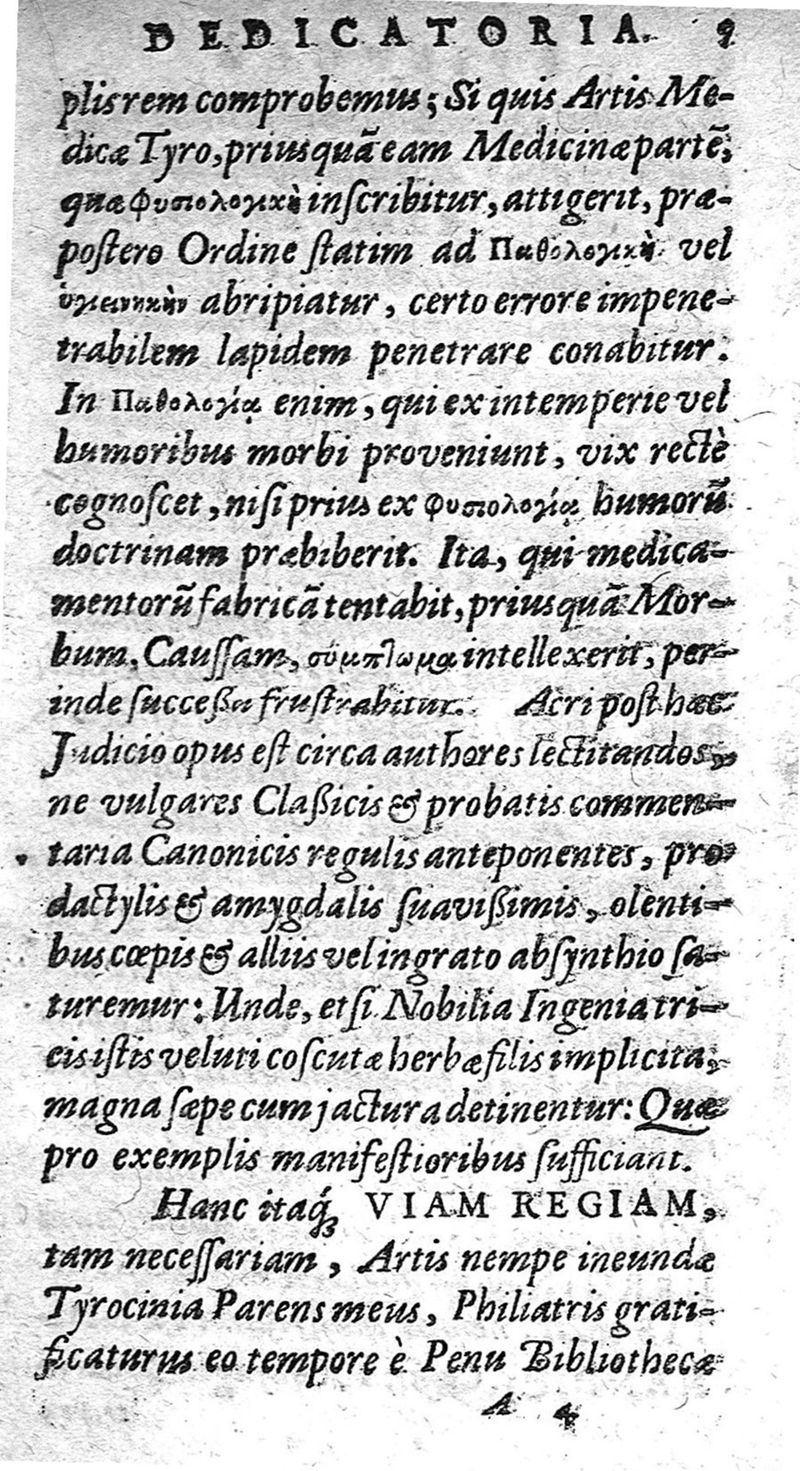 DEDICATORIA. 9
plis rem comprobemus; Si quis Artis Me-
dicæ Tyro, priusquā eam Medicinæ partē,
quæ φυσιολογικὴ inſcribitur, attigerit, præ-
poſtero Ordine ſtatim ad Παθολογικὴν vel
ὑγιεινηκὴν abripiatur, certo errore impene-
trabilem lapidem penetrare conabitur.
In Παθολογίᾳ enim, qui ex intemperie vel
humoribus morbi proveniunt, vix rectè
cognoſcet, niſi prius ex φυσιολογίᾳ humorū
doctrinam præbiberit. Ita, qui medica-
mentorū fabricā tentabit, priusquā Mor-
bum, Cauſſam, σύμπτωμα intellexerit, per-
inde ſucceſſu fruſtrabitur. Acri poſt hæc
Judicio opus eſt circa authores lectitandos,
ne vulgares Claſſicis & probatis commen-
taria Canonicis regulis anteponentes, pro
dactylis & amygdalis ſuaviſſimis, olenti-
bus cœpis & alliis vel ingrato abſynthio ſa-
turemur: Unde, etſi Nobilia Ingenia tri-
cis iſtis veluti coſcutæ herbæ filis implicita,
magna ſæpe cum jactura detinentur: Quæ
pro exemplis manifeſtioribus ſufficiant.
Hanc itaq́; VIAM REGIAM,
tam neceſſariam, Artis nempe ineundæ
Tyrocinia Parens meus, Philiatris grati-
ficaturus eo tempore è Penu Bibliothecæ
A 4